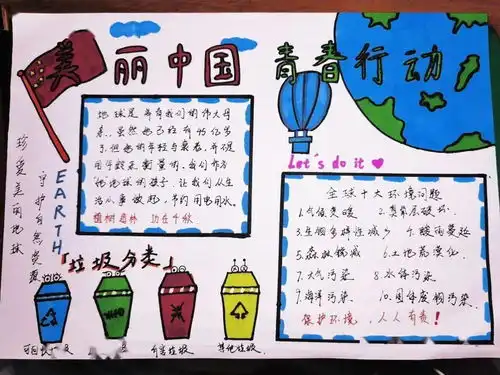 美丽中国 青春行动
地球是养育我们的伟大母
亲。虽然她已经有45亿岁
了,但她的年轻与衰老,并不是
用年龄来衡量的。
地球的孩子,让我们从生
活小事做起,节约用电用水。
植树造林 功在千秋
Let's do it
珍爱美丽地球
守护自然资源
EARTH
「垃圾分类」
全球十大环境问题
1.气候变暖 2.臭氧层破坏
3.生物多样性减少 4.酸雨蔓延
5.森林锐减 6.土地荒漠化
7.大气污染 8.水体污染
9.海洋污染 10.固体废物污染
保护环境,人人有责!
可回收
有害垃圾
其他垃圾